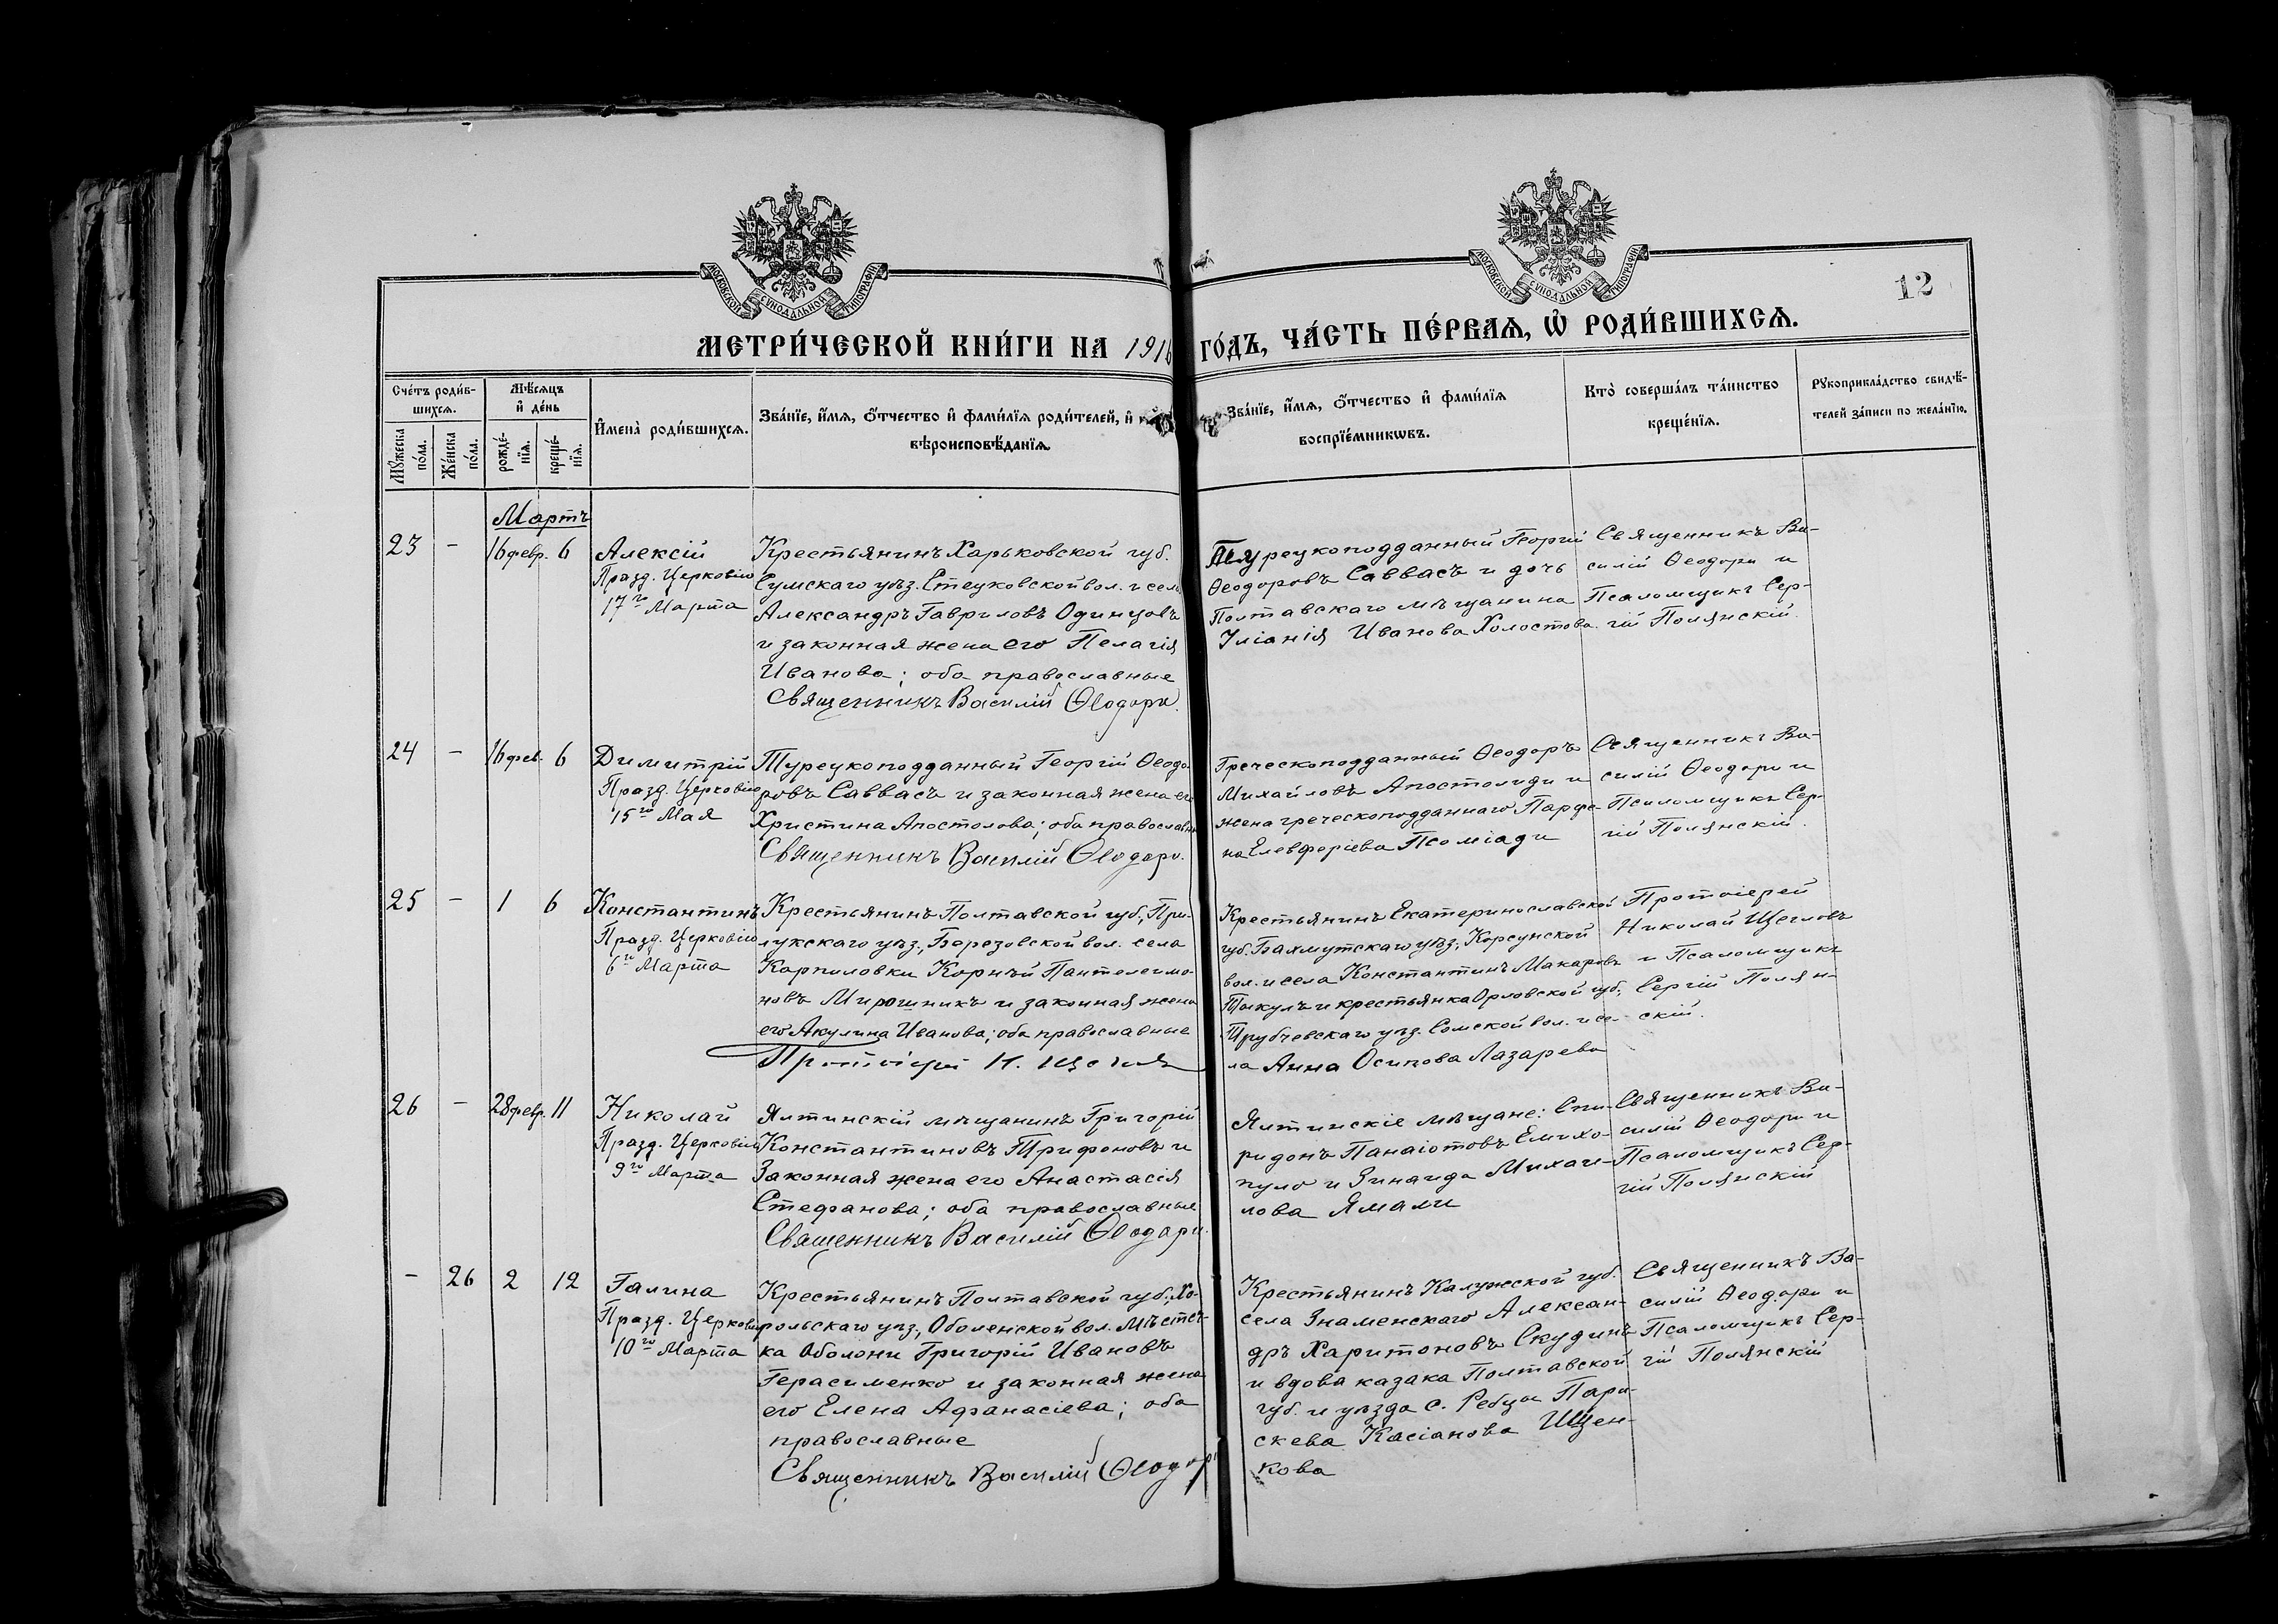 МОСКОВСКОЙ СѴНОДАЛЬНОЙ ТИПОГРАФІИ
МОСКОВСКОЙ СѴНОДАЛЬНОЙ ТИПОГРАФІИ
12
МЕТРИ́ЧЕСКОЙ КНИ́ГИ НА 1916 ГО́ДЪ, ЧА́СТЬ ПЕ́РВАѦ, Ѡ҆ РОДИ́ВШИХСѦ.
Сче́тъ роди́в-
шихсѧ.
Мꙋ́жеска
по́ла.
Же́нска
по́ла.
Мѣ́сѧцъ
и҆ де́нь
рожде́-
нїѧ.
креще́-
нїѧ.
И҆мена̀ роди́вшихсѧ.
Зва́нїе, и҆́мѧ, ѻ҆́тчество и҆ фами́лїѧ роди́телей, и҆
вѣроисповѣ́данїѧ
Зва́нїе, и҆́мѧ, ѻ҆́тчество и҆ фами́лїѧ
воспрїе́мникѡвъ.
Кто̀ соверша́лъ та́инство
креще́нїѧ.
Рꙋкоприкла́дство свидѣ́-
телей за́писи по жела́нїю.
Мартъ
23 - 16 февр. 6
Алексій
Празд. Церковію
17го Марта
Крестьянинъ Харьковской губ.
Сумскаго уѣз. Стецковской вол. и села
Александръ Гавриловъ Одинцовъ
и законная жена его Пелагія
Иванова; оба православные
Священникъ Василій Ѳеодори.
Турецкоподданный Георгій
Ѳеодоровъ Саввасъ и дочь
Полтавскаго мѣщанина
Уліанія Иванова Холостова.
Священникъ Ва-
силій Ѳеодори и
Псаломщикъ Сер-
гій Полянскій.
24 - 16 фев. 6
Димитрій
Празд. Церковію
15го Мая
Турецкоподданный Георгій Ѳеодо-
ровъ Саввасъ и законная жена его
Христина Апостолова; оба православн
Священникъ Василій Ѳеодори.
Греческоподданный Ѳеодоръ
Михайловъ Апостолиди и
жена греческоподданнаго Парѳе-
на Елевферіева Псоміади
Священникъ Ва-
силій Ѳеодори и
Псаломщикъ Сер-
гій Полянскій.
25 - 1 6
Константинъ
Празд. Церковію
6го Марта
Крестьянинъ Полтавской губ., При-
лукскаго уѣз., Березовской вол. села
Карпиловки Корнѣй Пантелеимо-
новъ Мирошникъ и законная жена
его Акулина Иванова; оба православные
Протоіерей Н. Щегловъ
Крестьянинъ Екатеринославской
губ. Бахмутскаго уѣз., Корсунской
вол. и села Константинъ Макаровъ
и крестьянка Орловской губ.,
Трубчевскаго уѣз. Сомской вол. и се-
ла Анна Осипова Лазарева
Протоіерей
Николай Щегловъ
и Псаломщикъ
Сергій Полян-
скій.
26 - 28 февр. 11
Николай
Празд. Церковію
9го Марта
Ялтинскій мѣщанинъ Григорій
Константиновъ Трифоновъ и
Законная жена его Анастасія
Стефанова; оба православные
Священникъ Василій Ѳеодори.
Ялтинскіе мѣщане: Спи-
ридонъ Панаіотовъ Емихо-
пуло и Зинаида Михаи-
лова Ямали
Священникъ Ва-
силій Ѳеодори и
Псаломщикъ Сер-
гій Полянскій
- 26 2 12
Галина
Празд. Церковію
10го Марта
Крестьянинъ Полтавской губ., Хо-
рольскаго уѣз., Оболенской вол. Мѣстеч-
ка Оболони Григорій Ивановъ
Герасименко и законная жена
его Елена Афанасіева; оба
православные
Священникъ Василій Ѳеодори
Крестьянинъ Калужской губ.
села Знаменскаго Алексан-
дръ Харитоновъ Скудинъ
и вдова казака Полтавской
губ. и уѣзда с. Ребцы Пара-
скева Касіанова Ищен-
кова
Священникъ Ва-
силій Ѳеодори и
Псаломщикъ Сер-
гій Полянскій